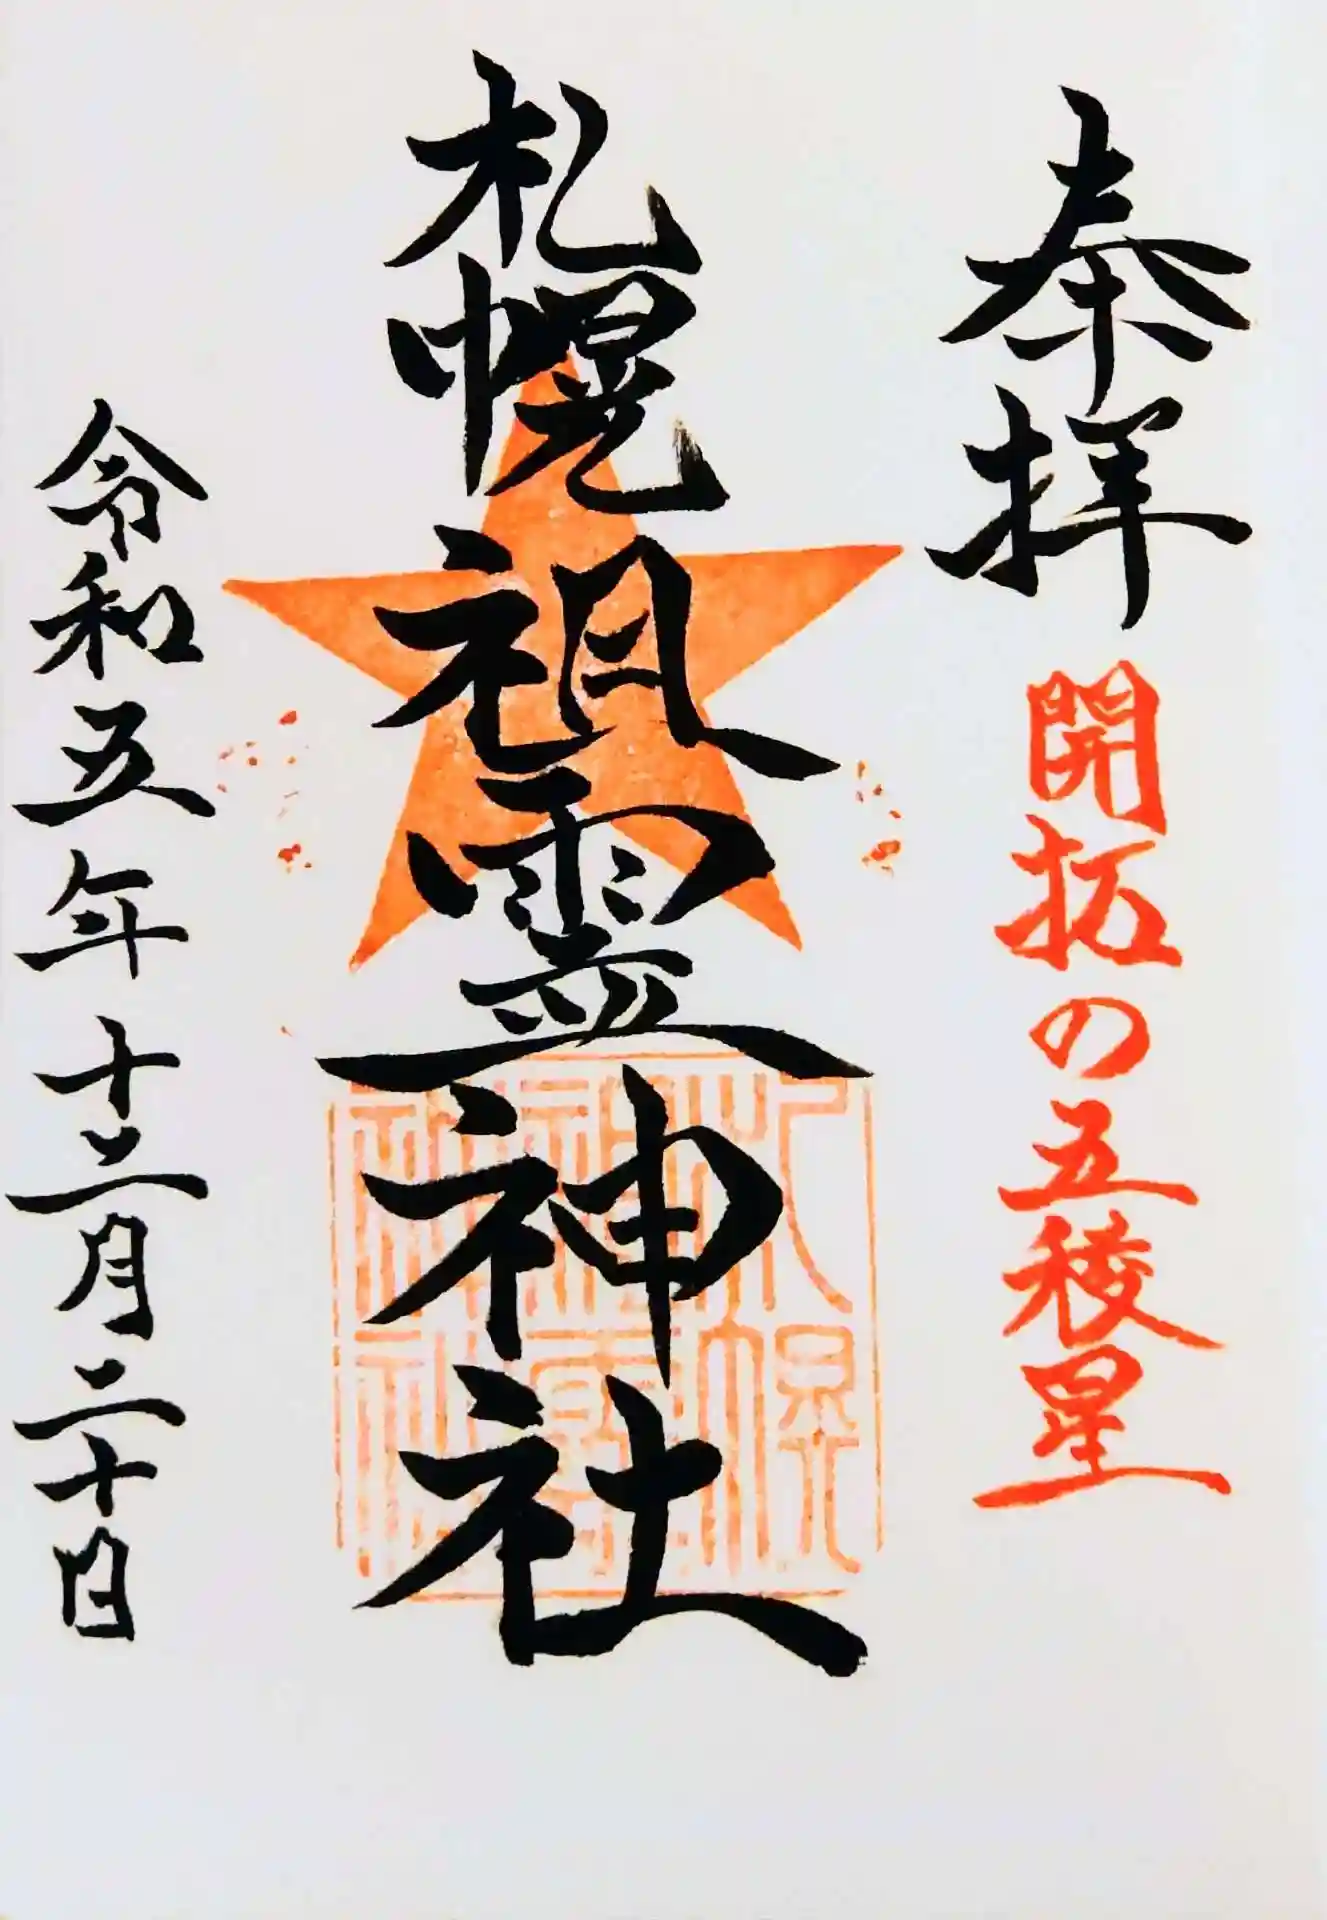 奉拝
開拓の五稜星
札幌祖霊神社
札幌
祖霊
神社
令和五年十二月二十日